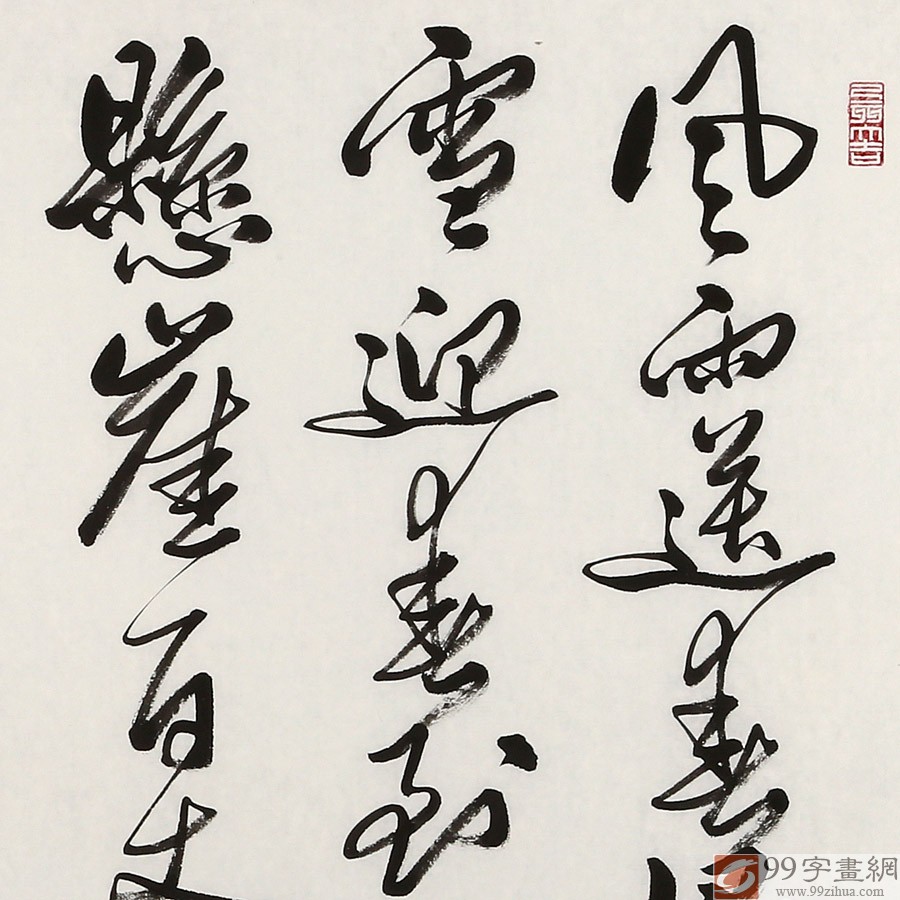 風雨送春
雪迎春到
懸崖百丈
99字畫網
www.99zihua.com